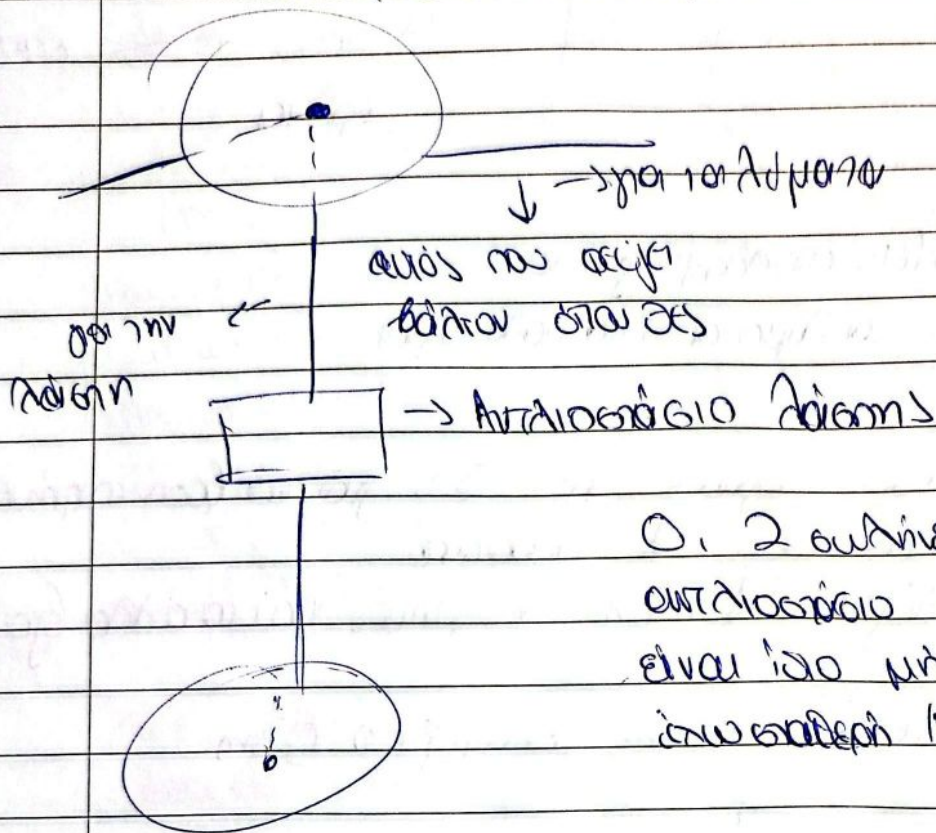 → για τα λύματα
αυτός που φεύγει
βάλτον όπου θες
για την
λάσπη
→ Αντλιοστάσιο λάσπης
Οι 2 σωλήνε
αντλιοστάσιο
είναι ίδιο μή
έχω σταθερή